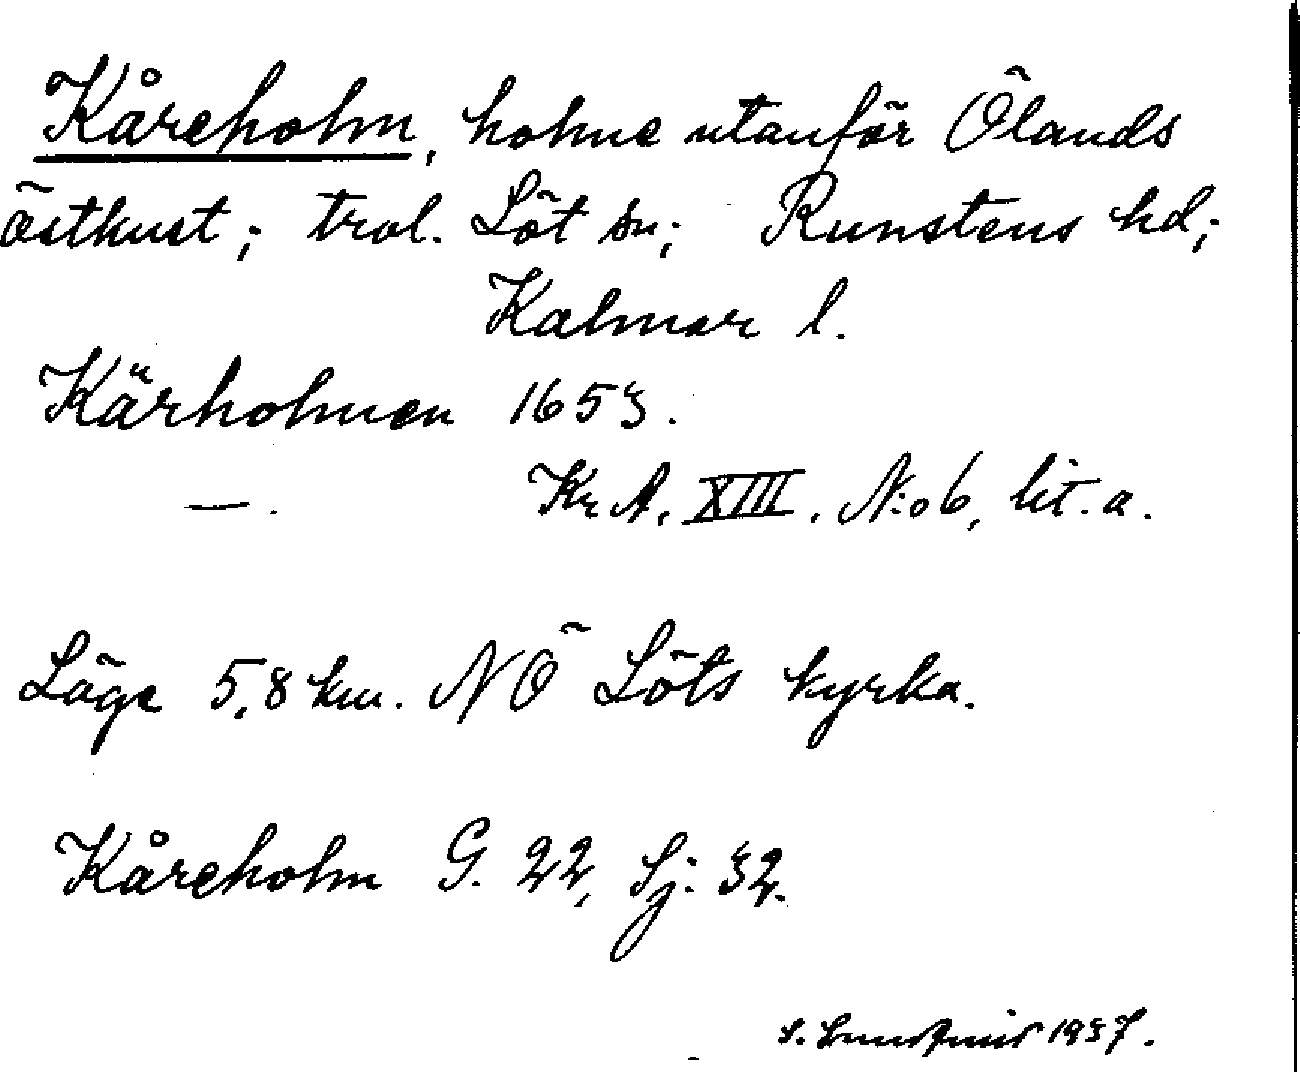 Kåreholm, holme utanför Ölands
östkust; trol. Löt sn; Runstens hd;
Kalmar l.
Kärholmen 1653.
— . Kr A. XIII. N:o 6, lit. a.
Läge 5,8 km. NÖ Löts kyrka.
Kåreholm G. 22, Sj: 32.
S. 1937.